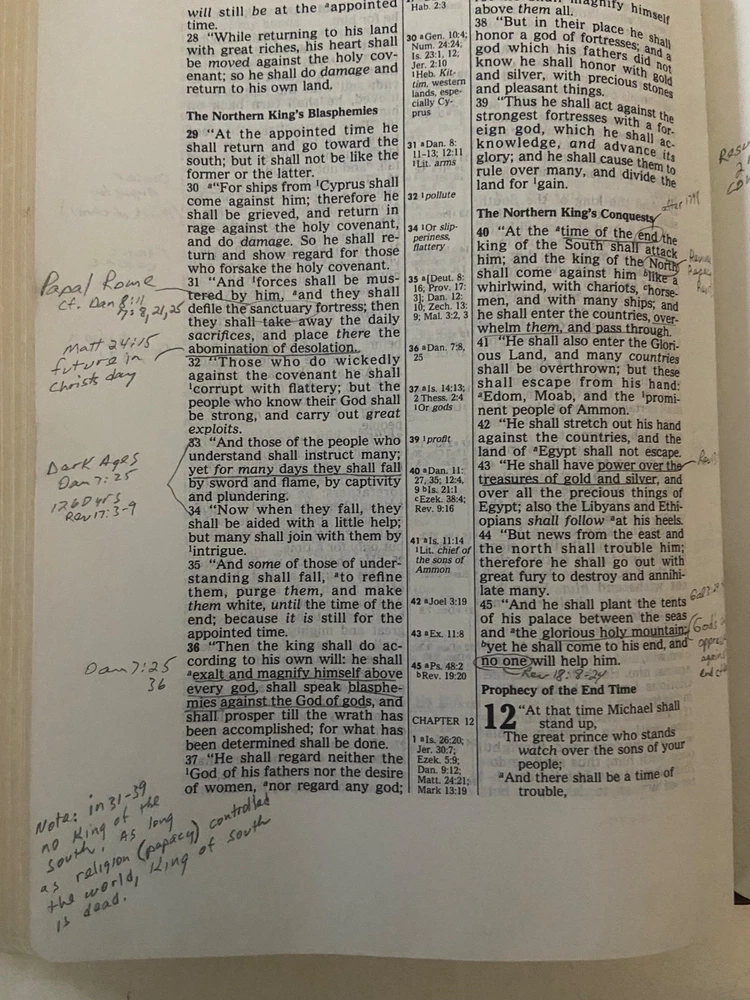 will still be at the ᵃappointed
time.
28 "While returning to his land
with great riches, his heart shall
be moved against the holy cov-
enant; so he shall do damage and
return to his own land.
The Northern King's Blasphemies
29 "At the appointed time he
shall return and go toward the
south; but it shall not be like the
former or the latter.
30 ᵃ"For ships from ¹Cyprus shall
come against him; therefore he
shall be grieved, and return in
rage against the holy covenant,
and do damage. So he shall re-
turn and show regard for those
who forsake the holy covenant.
31 "And ¹forces shall be mus-
tered by him, ᵃand they shall
defile the sanctuary fortress; then
they shall take away the daily
sacrifices, and place there the
abomination of desolation.
32 "Those who do wickedly
against the covenant he shall
¹corrupt with flattery; but the
people who know their God shall
be strong, and carry out great
exploits.
33 "And those of the people who
understand shall instruct many;
yet for many days they shall fall
by sword and flame, by captivity
and plundering.
34 "Now when they fall, they
shall be aided with a little help;
but many shall join with them by
¹intrigue.
35 "And some of those of under-
standing shall fall, ᵃto refine
them, purge them, and make
them white, until the time of the
end; because it is still for the
appointed time.
36 "Then the king shall do ac-
cording to his own will: he shall
ᵃexalt and magnify himself above
every god, shall speak blasphe-
mies against the God of gods, and
shall prosper till the wrath has
been accomplished; for what has
been determined shall be done.
37 "He shall regard neither the
¹God of his fathers nor the desire
of women, ᵃnor regard any god;
Papal Rome
cf. Dan 8:11
Matt 24:15
future in
Christs day
Dark Ages
Dan 7:25
1260 yrs
Rev 17:3-9
Dan 7:25
36
Note: in 31-39
no King of the
South. As long
as religion (papacy) controlled
the world, King of South
is dead.
Hab. 2:3
30 ᵃGen. 10:4;
Num. 24:24;
Is. 23:1, 12;
Jer. 2:10
¹Heb. Kit-
tim, western
lands, espe-
cially Cy-
prus
31 ᵃDan. 8:
11-13; 12:11
¹Lit. arms
32 ¹pollute
34 ¹Or slip-
periness,
flattery
35 ᵃ[Deut. 8:
16; Prov. 17:
3]; Dan. 12:
10; Zech. 13:
9; Mal. 3:2, 3
36 ᵃDan. 7:8,
25
37 ᵃIs. 14:13;
2 Thess. 2:4
¹Or gods
39 ¹profit
40 ᵃDan. 11:
27, 35; 12:4,
9 ᵇIs. 21:1
ᶜEzek. 38:4;
Rev. 9:16
41 ᵃIs. 11:14
¹Lit. chief of
the sons of
Ammon
42 ᵃJoel 3:19
43 ᵃEx. 11:8
45 ᵃPs. 48:2
ᵇRev. 19:20
CHAPTER 12
1 ᵃIs. 26:20;
Jer. 30:7;
Ezek. 5:9;
Dan. 9:12;
Matt. 24:21;
Mark 13:19
magnify himself
above them all.
38 "But in their place he shall
honor a god of fortresses; and a
god which his fathers did not
know he shall honor with gold
and silver, with precious stones
and pleasant things.
39 "Thus he shall act against the
strongest fortresses with a for-
eign god, which he shall ac-
knowledge, and advance its
glory; and he shall cause them to
rule over many, and divide the
land for ¹gain.
The Northern King's Conquests
after 1798
40 "At the ᵃtime of the end the
king of the South shall attack
him; and the king of the North
shall come against him ᵇlike a
whirlwind, with chariots, ᶜhorse-
men, and with many ships; and
he shall enter the countries, over-
whelm them, and pass through.
41 "He shall also enter the Glori-
ous Land, and many countries
shall be overthrown; but these
shall escape from his hand:
ᵃEdom, Moab, and the ¹promi-
nent people of Ammon.
42 "He shall stretch out his hand
against the countries, and the
land of ᵃEgypt shall not escape.
43 "He shall have power over the
treasures of gold and silver, and
over all the precious things of
Egypt; also the Libyans and Ethi-
opians shall follow ᵃat his heels.
44 "But news from the east and
the north shall trouble him;
therefore he shall go out with
great fury to destroy and annihi-
late many.
45 "And he shall plant the tents
of his palace between the seas
and ᵃthe glorious holy mountain;
ᵇyet he shall come to his end, and
no one will help him.
Rev 18:8-24
God's
Prophecy of the End Time
12 "At that time Michael shall
stand up,
The great prince who stands
watch over the sons of your
people;
ᵃAnd there shall be a time of
trouble,